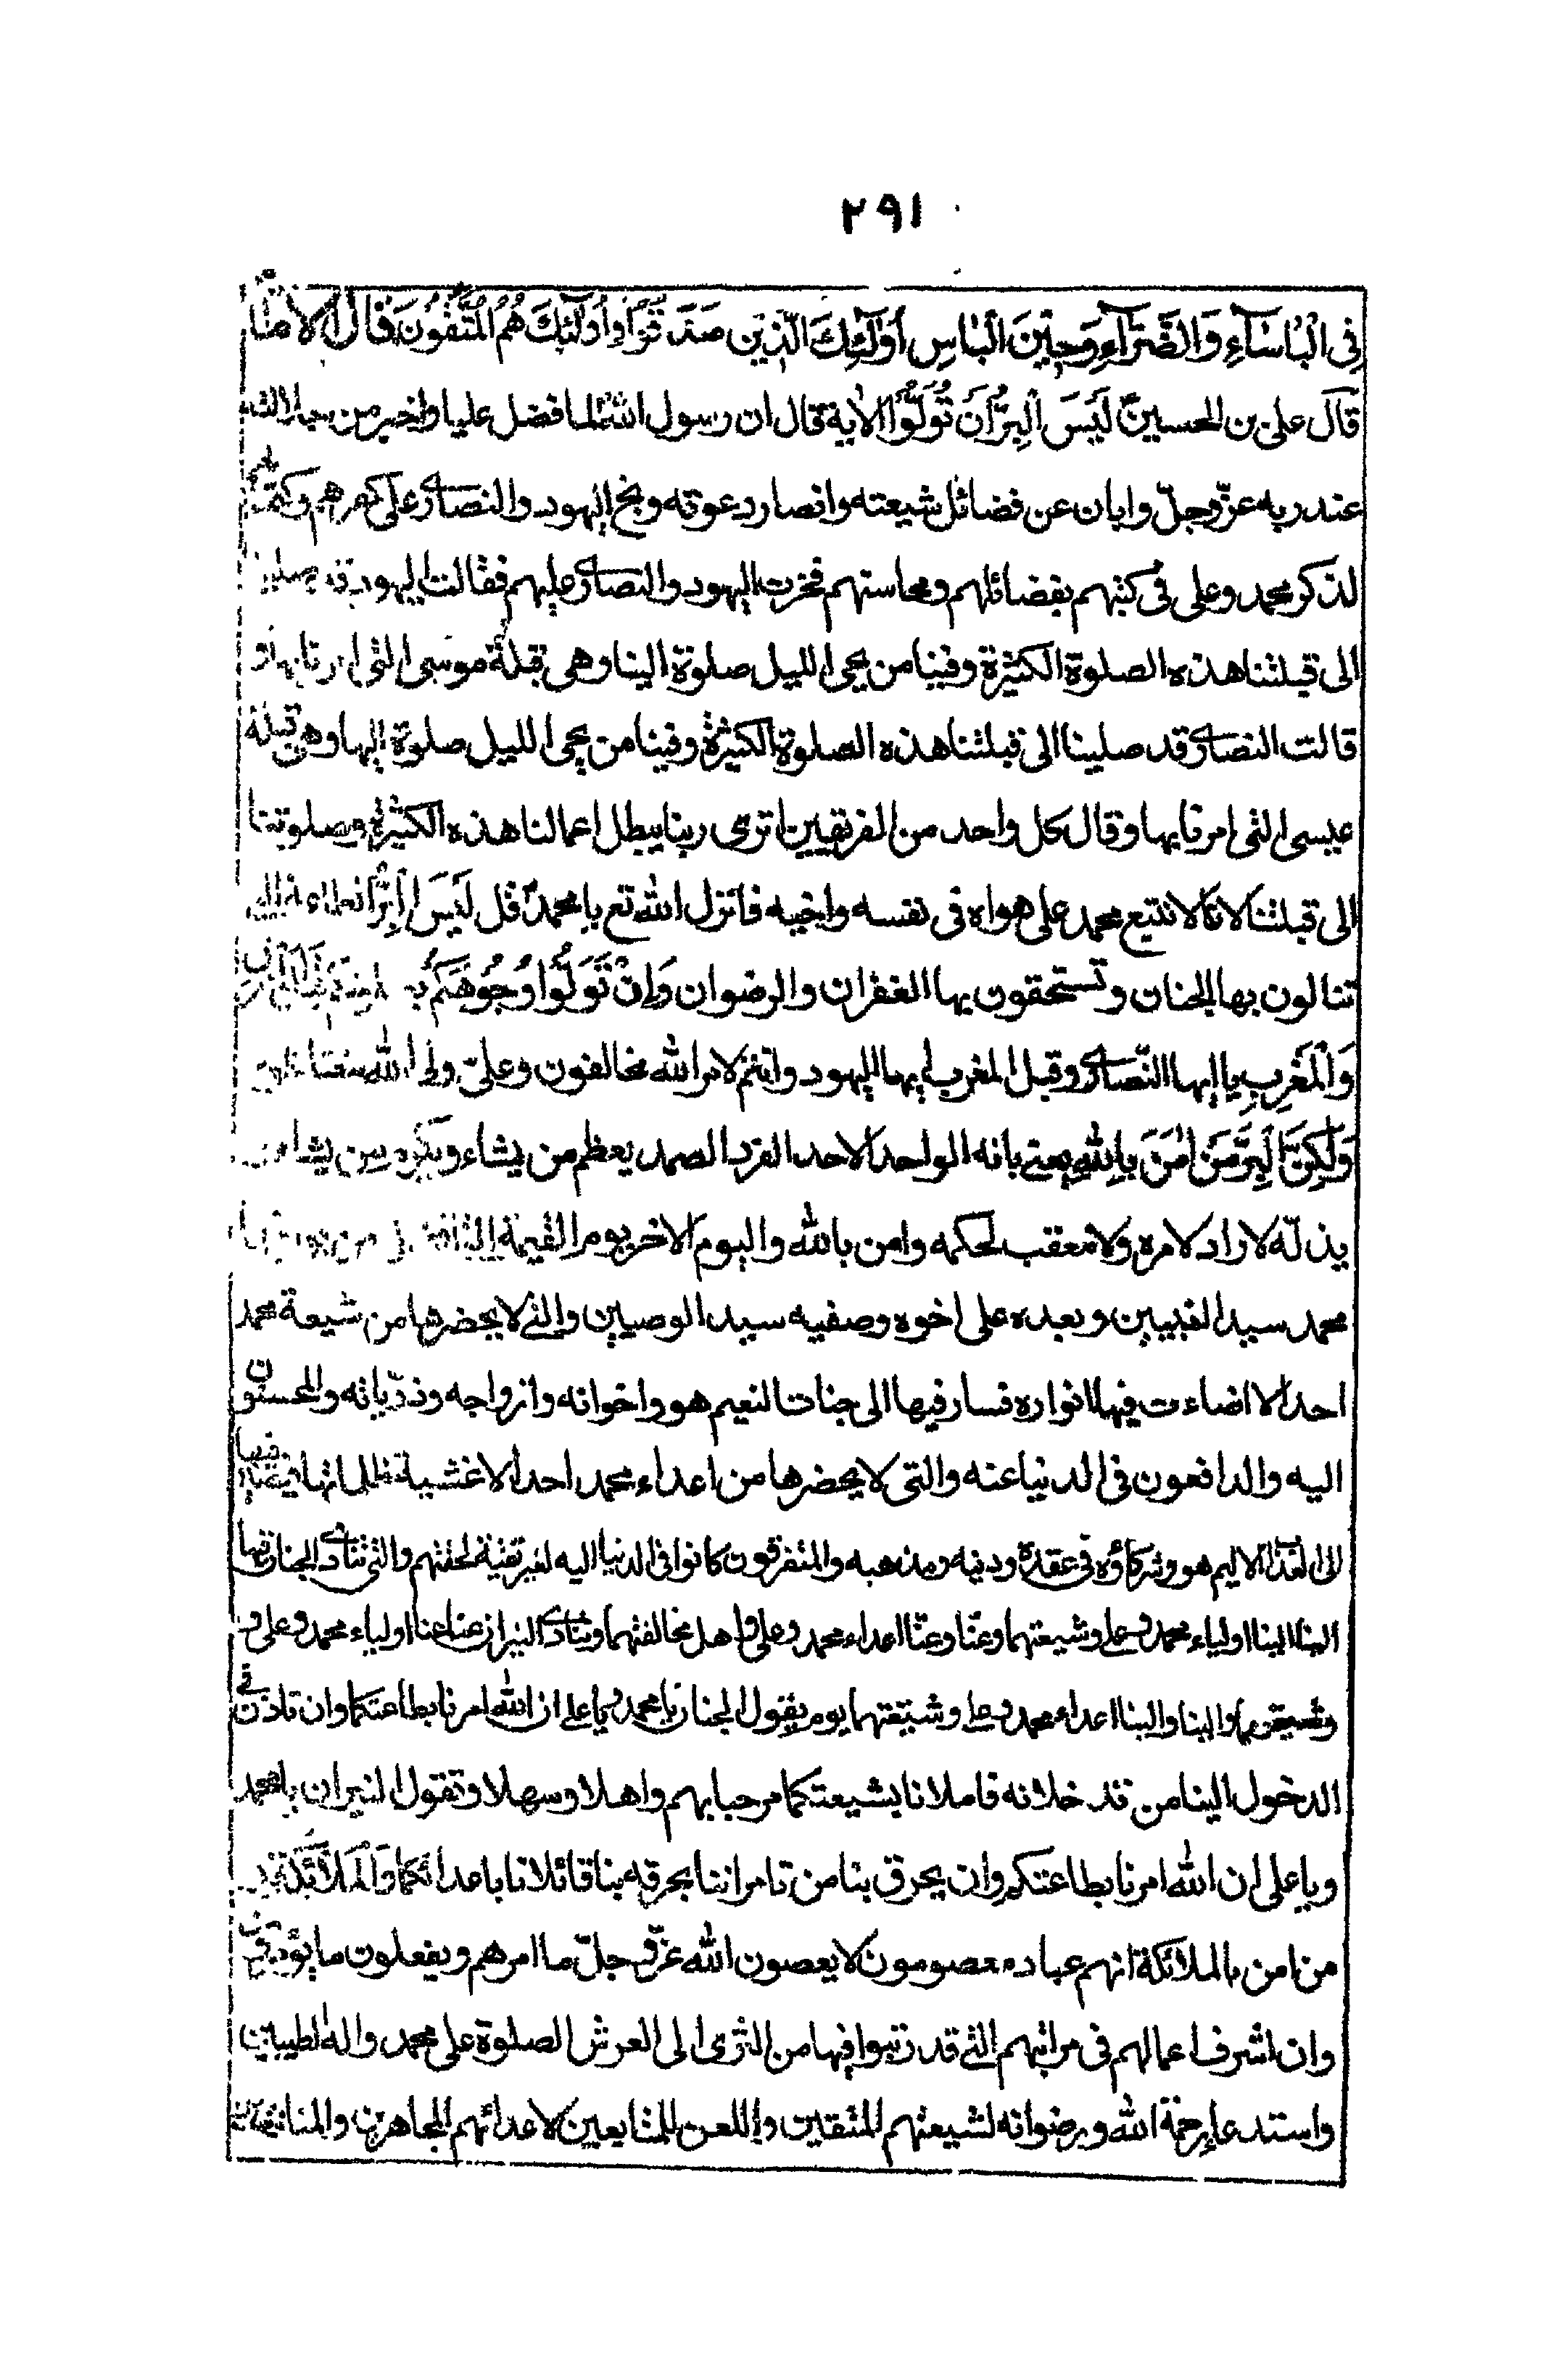 ٢٩١
فِى الْبَأْسَآءِ وَالضَّرَّآءِ وَحِيْنَ الْبَأْسِ أُولٰٓئِكَ الَّذِيْنَ صَدَقُوْا وَاُولٰٓئِكَ هُمُ الْمُتَّقُوْنَ قال الامام
قال على بن الحسين لَيْسَ الْبِرَّ اَنْ تُوَلُّوْا الاية قال ان رسول الله لما فضل عليا واخبر من
عند ربه عزّ وجلّ وابان عن فضائل شيعته وانصار دعوته وبخ اليهود والنصارى على كفرهم وكتمانهم
لذكر محمد وعلى فى كتبهم بفضائلهم ومحاسنهم فخرت اليهود والنصارى عليهم فقالت اليهود قد صلينا
الى قبلتنا هذه الصلوة الكثيرة وفينا من يحيى الليل صلوة اليها وهى قبلة موسى التى امرنا بها و
قالت النصارى قد صلينا الى قبلتنا هذه الصلوة الكثيرة وفينا من يحيى الليل صلوة اليها وهى قبلة
عيسى التى امرنا بها وقال كل واحد من الفريقين اترى ربنا يبطل اعمالنا هذه الكثيرة وصلوتنا
الى قبلتنا لانا لا نتبع محمد على هواه فى نفسه واخيه فانزل الله تع يا محمد قل لَيْسَ الْبِرَّ
تنالون بها الجنان وتستحقون بها الغفران والرضوان وَاِنْ تُوَلُّوْا وُجُوْهَكُمْ
وَالْمَغْرِبِ يا ايها النّصارى وقبل المغرب يا ايها اليهود وانتم لامر الله مخالفون وعلى ولى الله
وَلٰكِنَّ الْبِرَّ مَنْ اٰمَنَ بِاللّٰهِ يعنى بانه الواحد الاحد الفرد الصمد يعظم من يشاء ويكرم من يشاء
يذلّه لا راد لامره ولا معقب لحكمه وامن بالله واليوم الاخر يوم القيمة التى
محمد سيد النبيين وبعده على اخوه وصفيه سيد الوصيين والتى لا يحضرها من شيعة محمد
احد الا اضاءت فيها انواره فسار فيها الى جنات النعيم هو واخوانه وازواجه وذرّياته والمحسنون
اليه والدافعون فى الدنيا عنه والتى لا يحضرها من اعداء محمد احد الا غشيته ظلماتها فيسير فيها
الى العذاب الاليم هو وشركاؤه فى عقده ودينه ومذهبه والمتفرقون كانوا فى الدنيا اليه لغير تقية لحقتهم والتى تنادى الجنان فيها
الينا الينا اولياء محمد وعلى وشيعتهما وعنّا وعنّا اعداء محمد وعلى واهل مخالفتهما وينادى النيران عنا عنا اولياء محمد وعلى و
وشيعتهما والينا والينا اعداء محمد وعلى وشيعتهما يوم يقول الجنان يا محمد ويا على ان الله امرنا بطاعتكما وان تاذن فى
الدخول الينا من قد خلانه فاملانا بشيعتكما مرحبا بهم واهلا وسهلا وتقول النيران يا محمد
ويا على ان الله امرنا بطاعتكم وان يحرق بنا من تامراننا بحرقه بنا فاملانا باعدائكما وَالْمَلٰٓئِكَةِ
من امن بالملائكة انهم عباده معصومون لا يعصون الله عزّ وجلّ ما امرهم ويفعلون ما يؤمرون
وان اشرف اعمالهم فى مراتبهم التى قد رتبوا فيها من الثرى الى العرش الصلوة على محمد واله الطيبين
واستدعاء رحمة الله ورضوانه لشيعتهم المتقين واللعن للمتابعين لاعدائهم المجاهرين والمنافقين